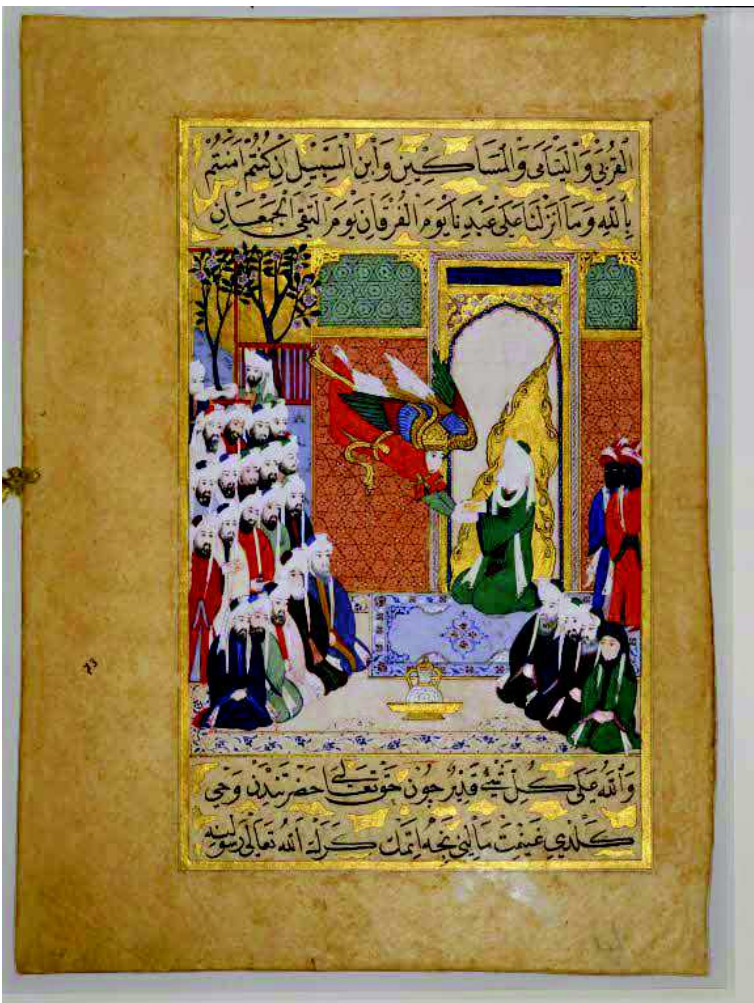 الْقُرْبَى وَالْيَتَامَى وَالْمَسَاكِينِ وَابْنِ السَّبِيلِ إِنْ كُنْتُمْ آمَنْتُمْ
بِاللَّهِ وَمَا أَنْزَلْنَا عَلَى عَبْدِنَا يَوْمَ الْفُرْقَانِ يَوْمَ الْتَقَى الْجَمْعَانِ
وَاللَّهُ عَلَى كُلِّ شَيْءٍ قَدِيرٌ جون حق تعالى حضرتندن وحى
كلدى غنيمت مالينى نجه اتمك كرك الله تعالى رسولينه